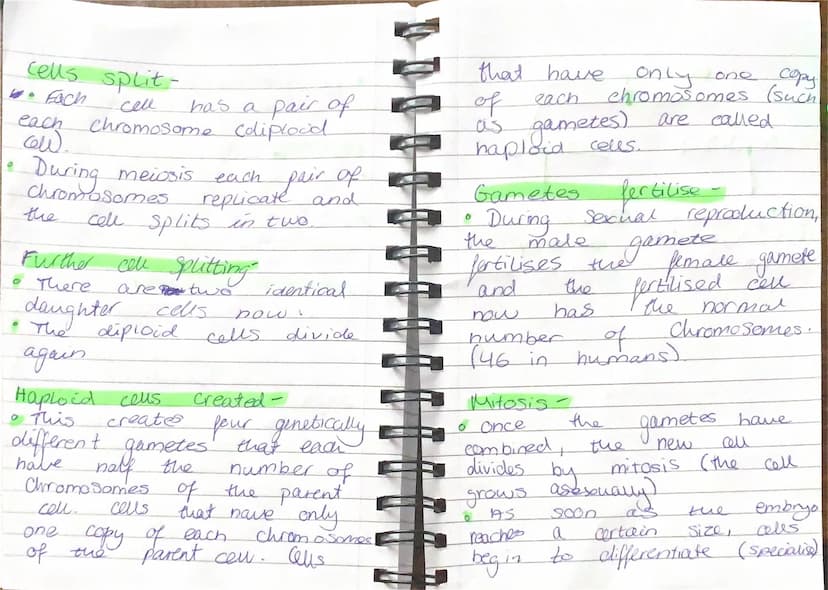 Cells split -
• Each cell has a pair of
each chromosome (diploid
cell).
• During meiosis each pair of
chromosomes replicate and
the cell splits in two.
Further cell splitting -
• There are two identical
daughter cells now.
• The diploid cells divide
again
Haploid cells created -
• This creates four genetically
different gametes that each
have half the number of
chromosomes of the parent
cell. Cells that have only
one copy of each chromosomes
of the parent cell. Cells
that have only one copy
of each chromosomes (such
as gametes) are called
haploid cells.
Gametes fertilise -
• During sexual reproduction,
the male gamete
fertilises the female gamete
and the fertilised cell
now has the normal
number of chromosomes.
(46 in humans)
Mitosis -
• Once the gametes have
combined, the new cell
divides by mitosis (the cell
grows asexually)
• As soon as the embryo
reaches a certain size, cells
begin to differentiate (specialise)